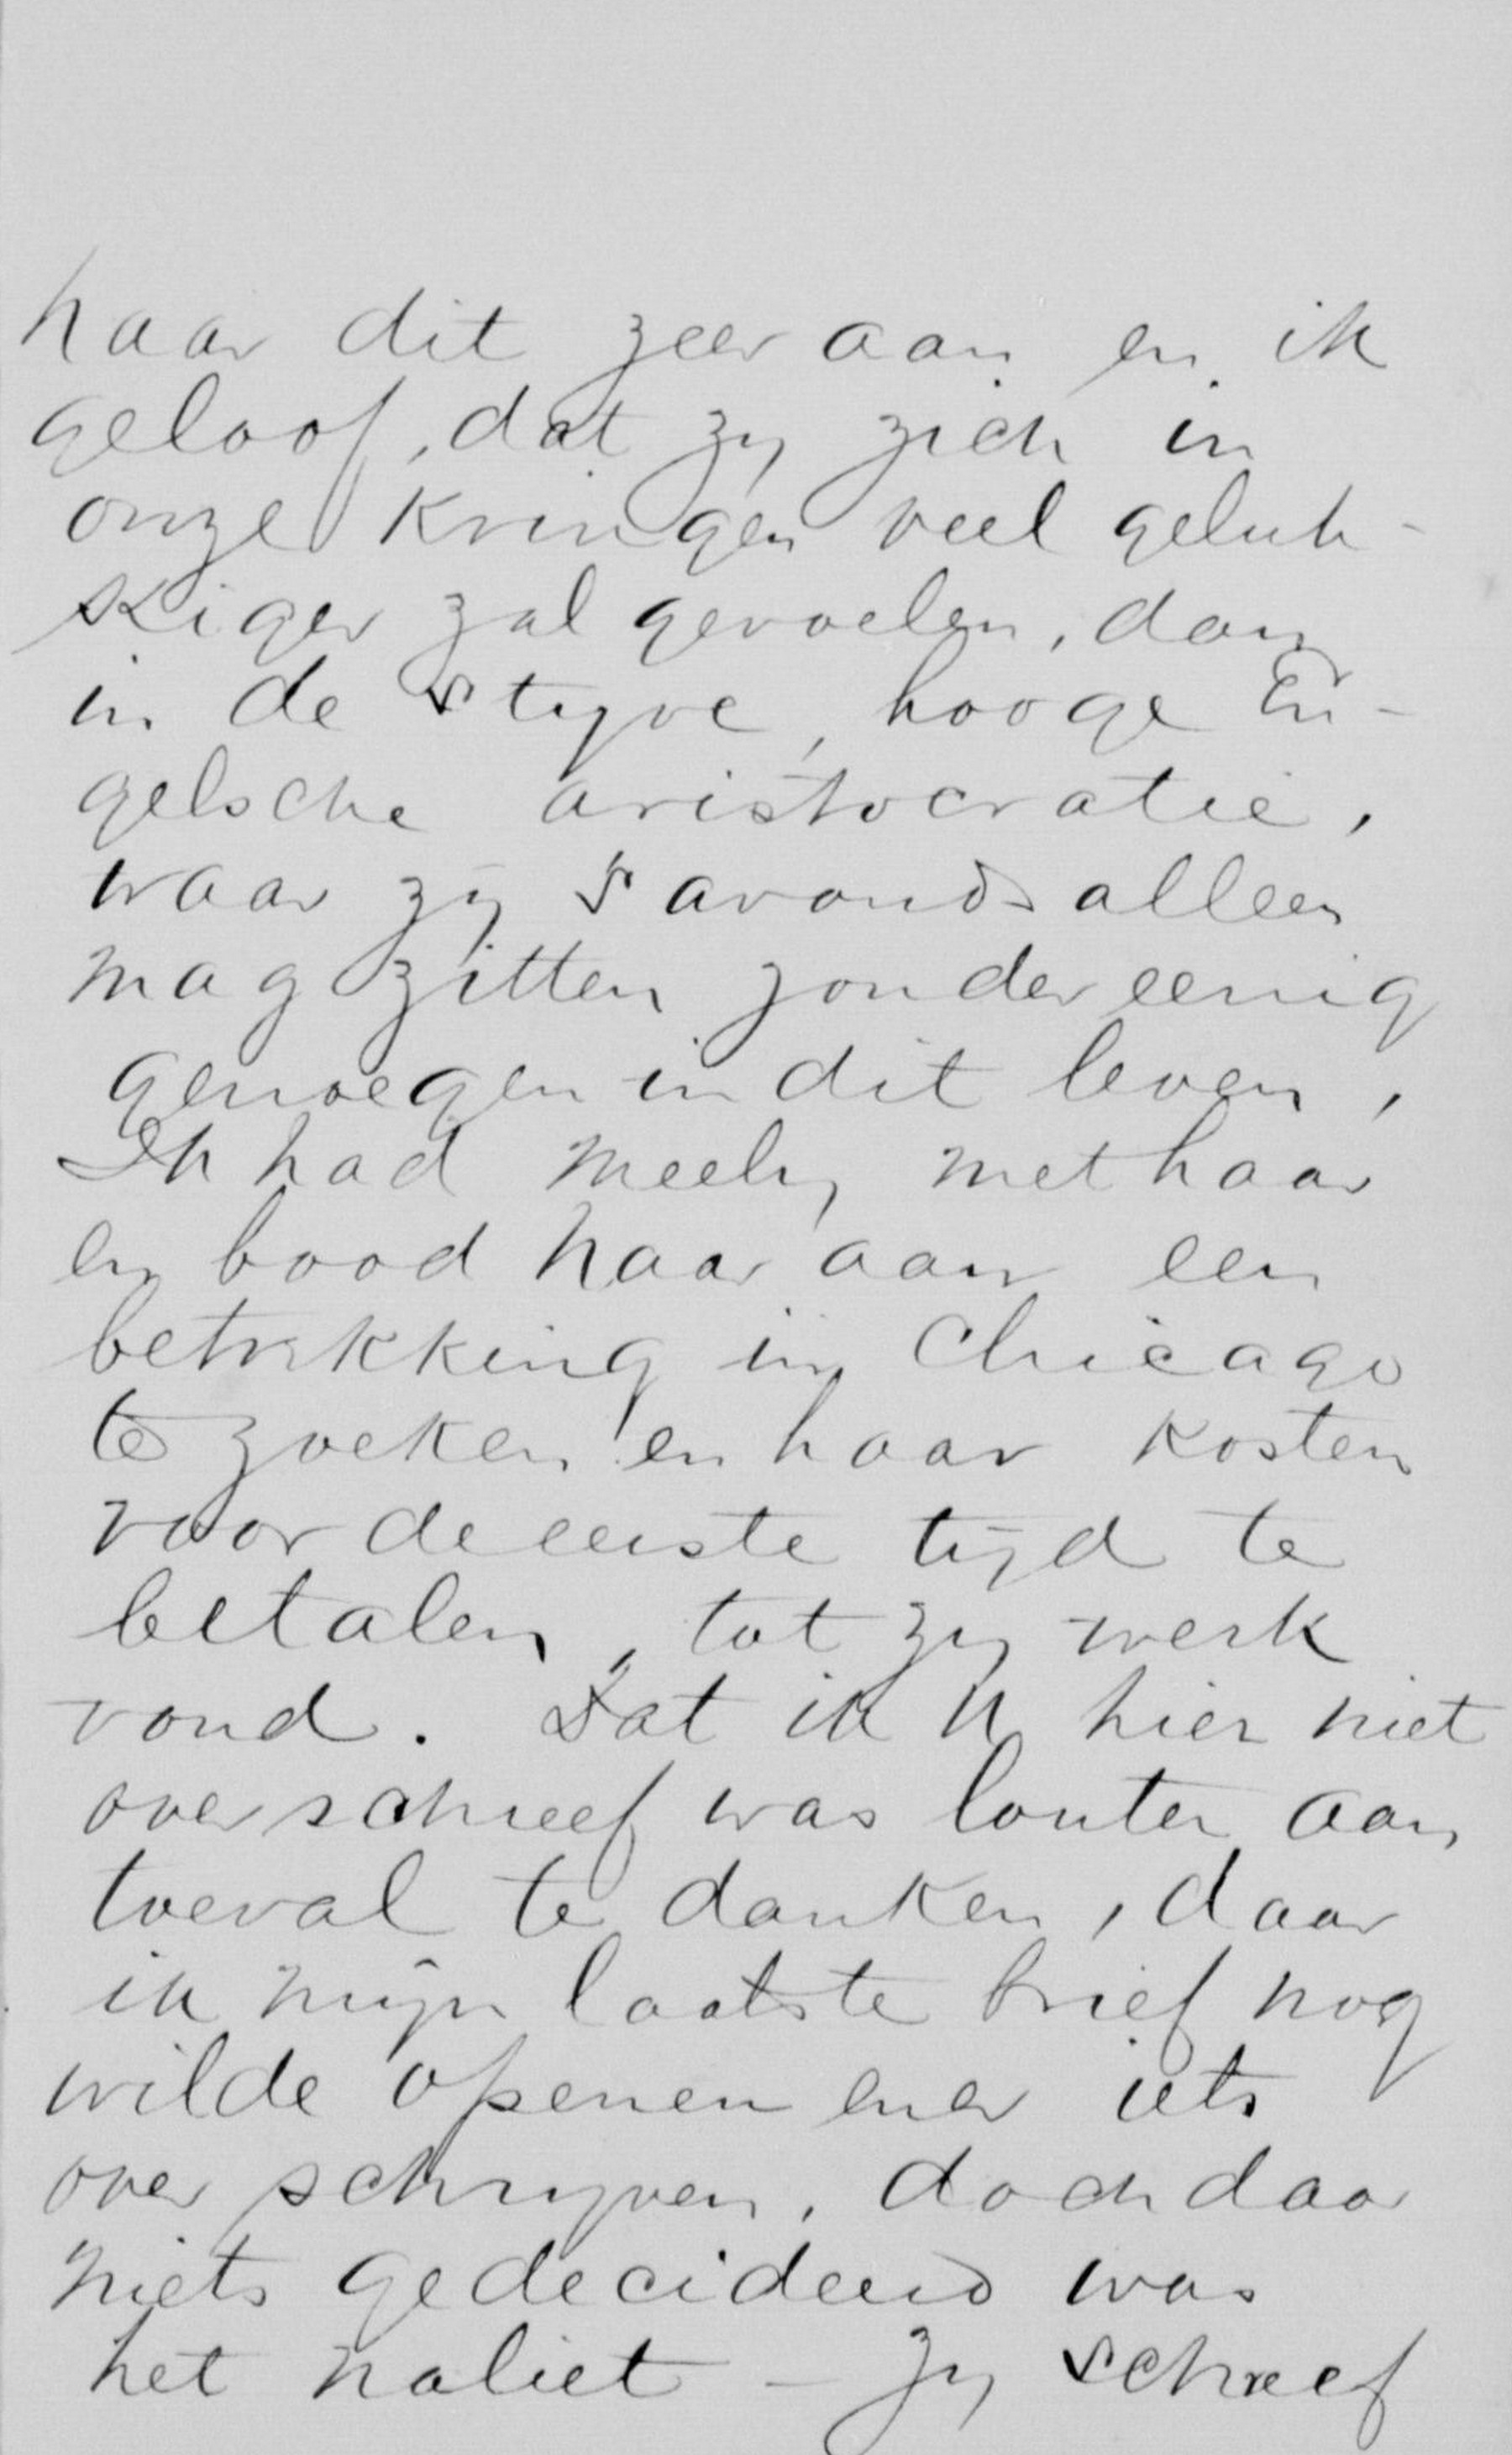 haar dit zeer aan en ik
geloof, dat zij zich in
onze kringen veel geluk-
kiger zal gevoelen, dan
in de styve, hooge En-
gelsche aristocratie,
waar zij s'avonds alleen
mag zitten zonder eenig
genoegen in dit leven,
Ik had meely met haar
en bood haar aan een
betrekking in Chicago
te zoeken en haar kosten
voor de eerste tijd te
betalen, tot zij werk
vond. Dat ik U hier niet
over schreef was louter aan
toeval te danken, daar
ik mijn laatste brief nog
wilde openen en er iets
over schrijven, doch daar
niets gedecideerd was
het naliet – Zij schreef